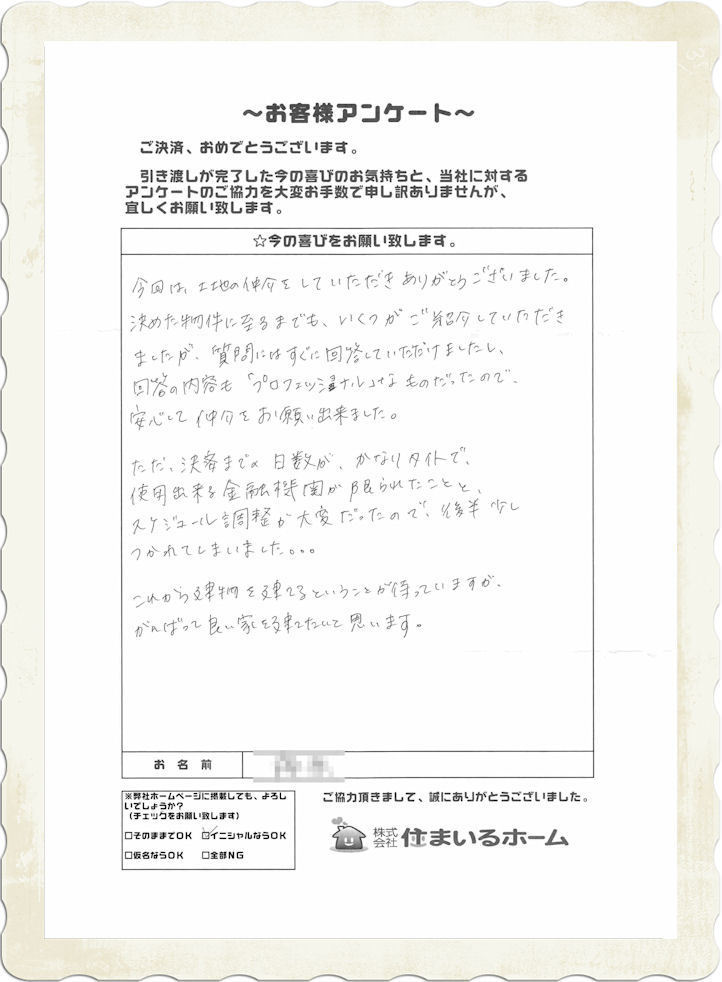 ～お客様アンケート～
ご決済、おめでとうございます。
引き渡しが完了した今の喜びのお気持ちと、当社に対する
アンケートのご協力を大変お手数で申し訳ありませんが、
宜しくお願い致します。
☆今の喜びをお願い致します。
今回は、土地の仲介をしていただきありがとうございました。
決めた物件に至るまでも、いくつかご紹介していただき
ましたが、質問にはすぐに回答していただけましたし、
回答の内容も「プロフェッショナル」なものだったので、
安心して仲介をお願い出来ました。
ただ、決済までの日数が、かなりタイトで、
使用出来る金融機関が限られたことと、
スケジュール調整が大変だったので、後半少し
つかれてしまいました。。。
これから建物を建てるということが待っていますが、
がんばって良い家を建てたいと思います。
お名前
※弊社ホームページに掲載しても、よろし
いでしょうか？
（チェックをお願い致します）
□そのままでOK ☑イニシャルならOK
□仮名ならOK □全部NG
ご協力頂きまして、誠にありがとうございました。
株式会社 住まいるホーム